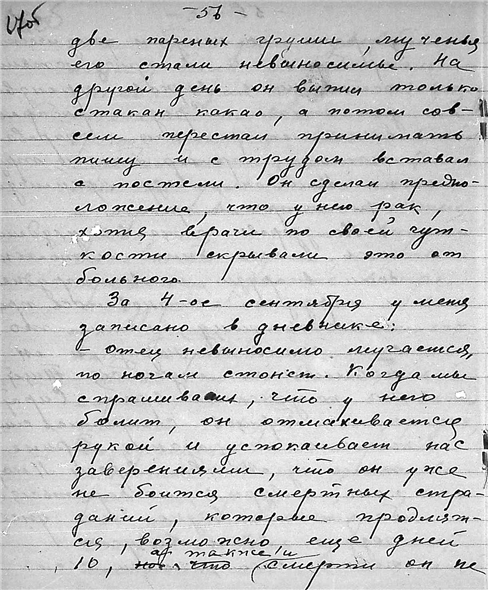 - 56 -
две пареных груши, мученья
его стали невыносимы. На
другой день он выпил только
стакан какао, а потом сов-
сем перестал принимать
пищу и с трудом вставал
с постели. Он сделал предпо-
ложение, что у него рак,
хотя врачи по своей чут-
кости скрывали это от
больного.
За 4-ое сентября у меня
записано в дневнике:
- отец невыносимо мучается,
по ночам стонет. Когда мы
спрашиваем, что у него
болит, он отмахивается
рукой и успокаивает нас
заверениями, что он уже
не боится смертных стра-
даний, которые продлят-
ся, возможно, еще дней
а также и
10, но что смерти он не